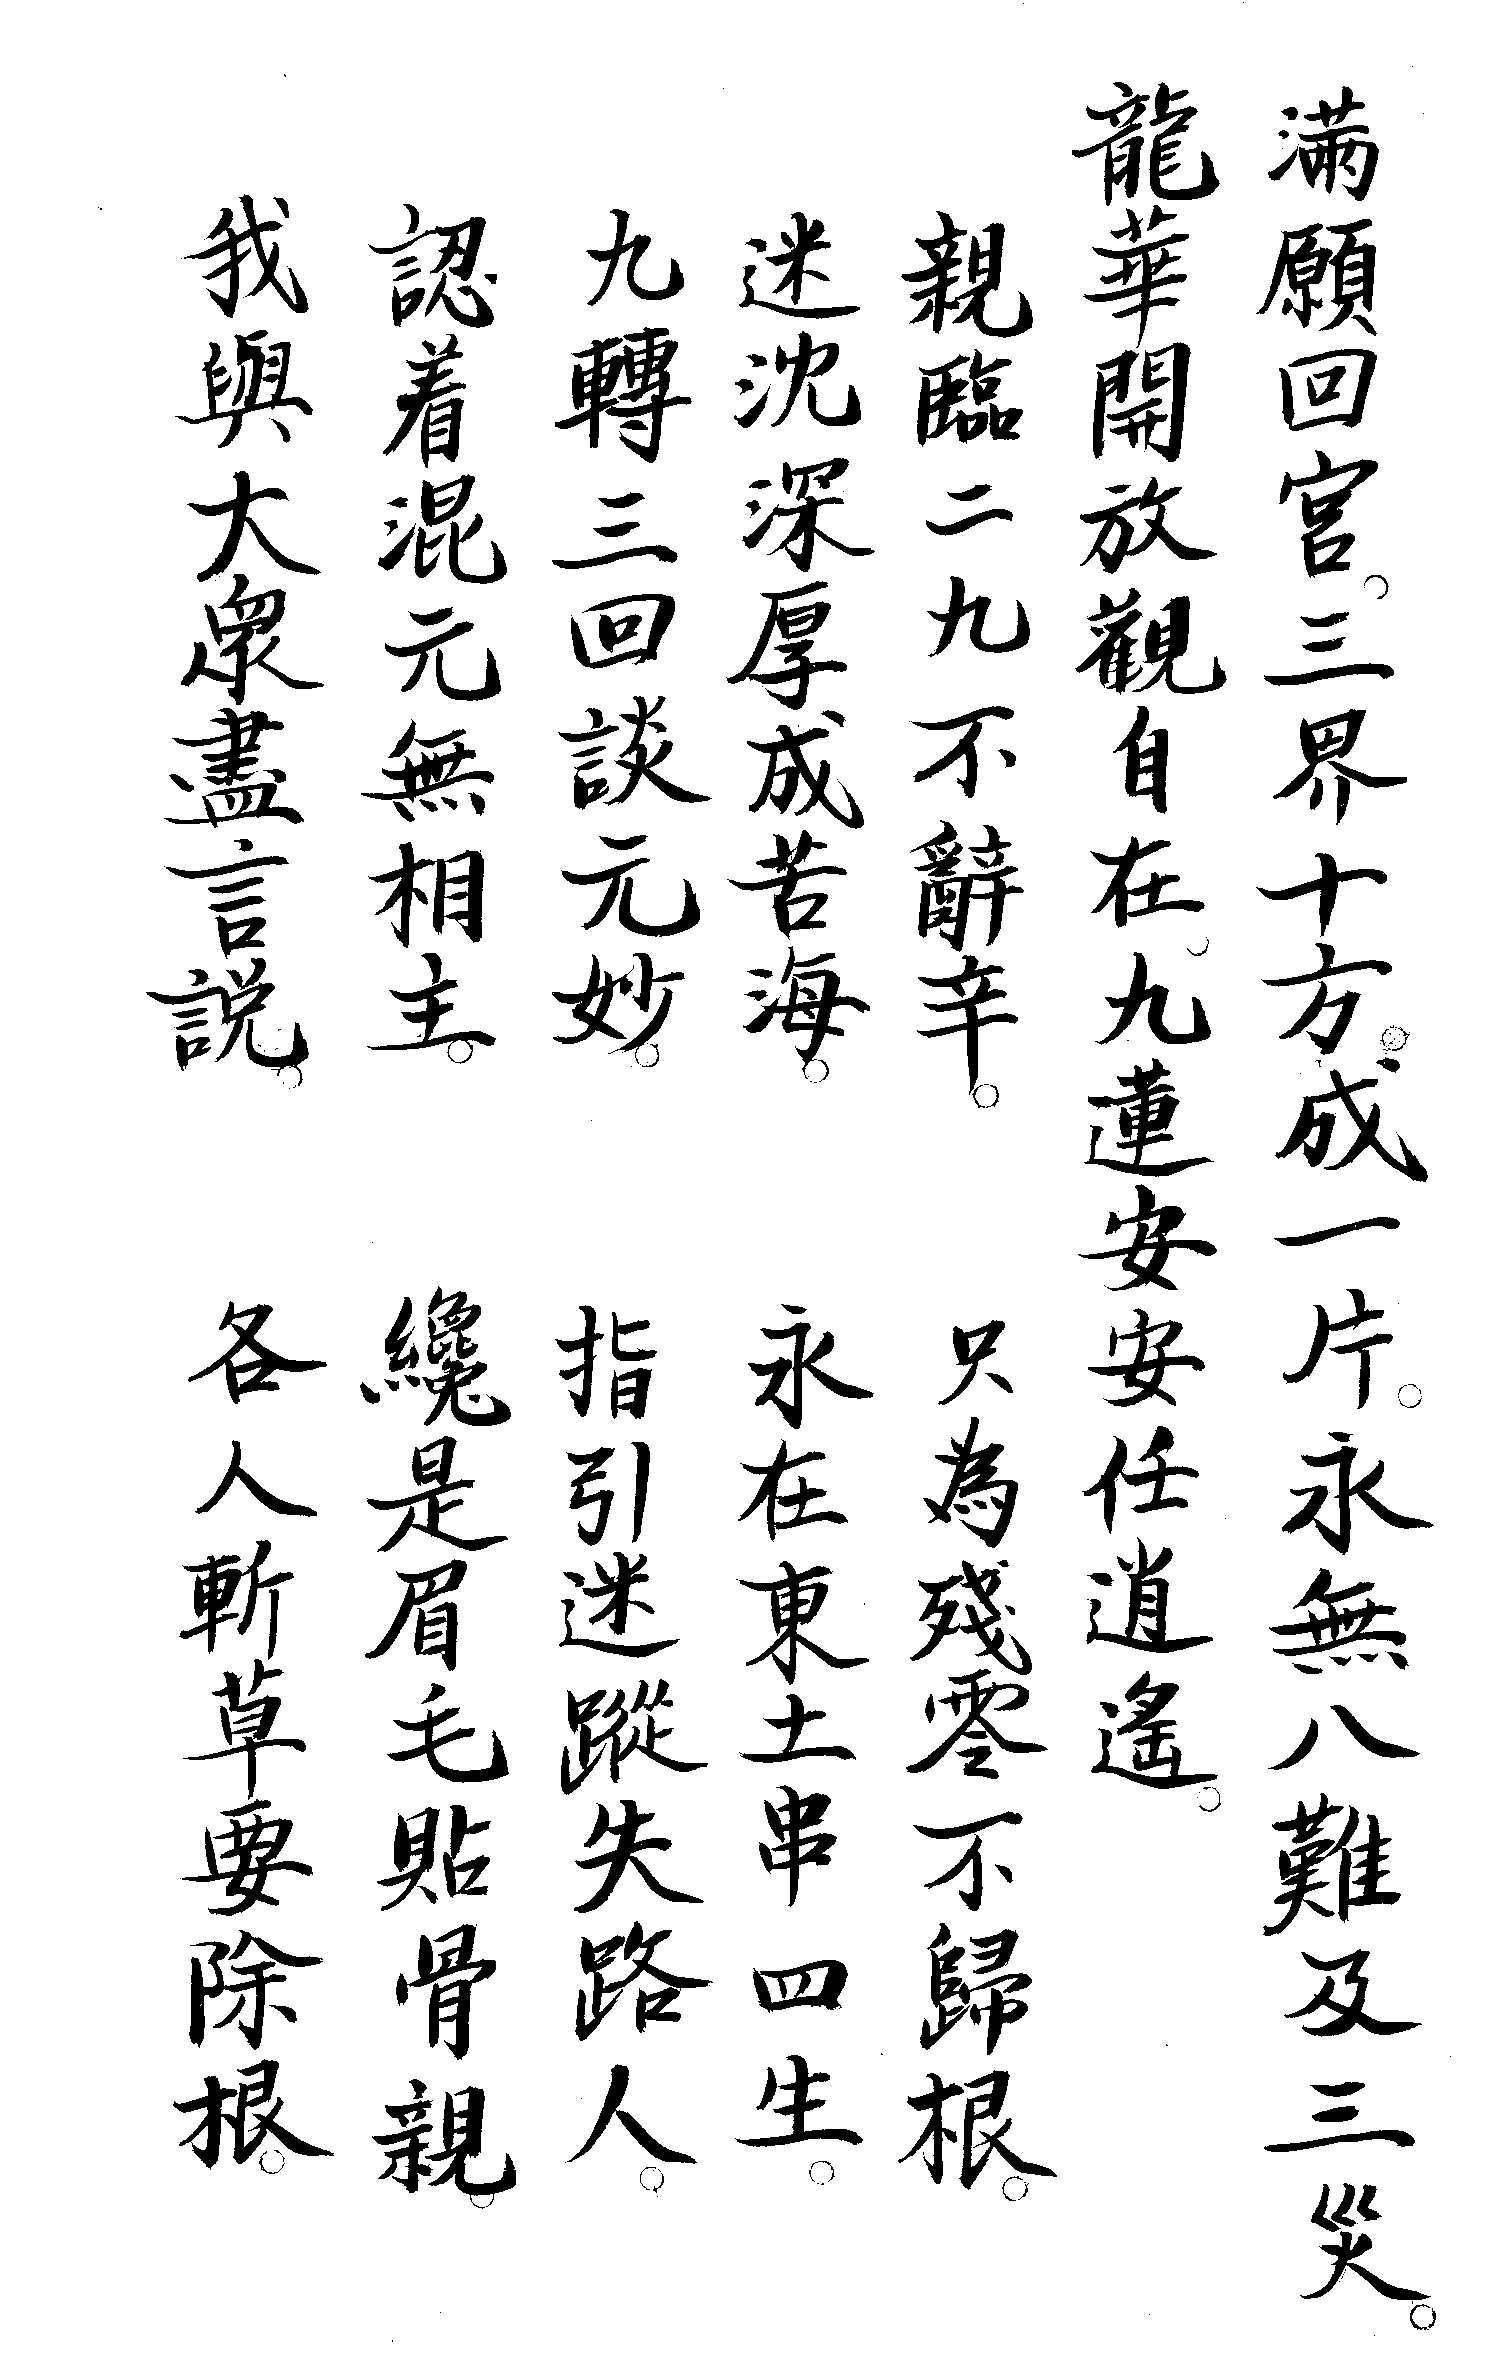 滿願回宮。三界十方。成一片。永無八難及三災。
龍華開放觀自在。九蓮安安任逍遙。
親臨二九不辭辛。只為殘零不歸根。
迷沈深厚成苦海。永在東土串四生。
九轉三回談元妙。指引迷蹤失路人。
認着混元無相主。纔是眉毛貼骨親。
我與大眾盡言説。各人斬草要除根。